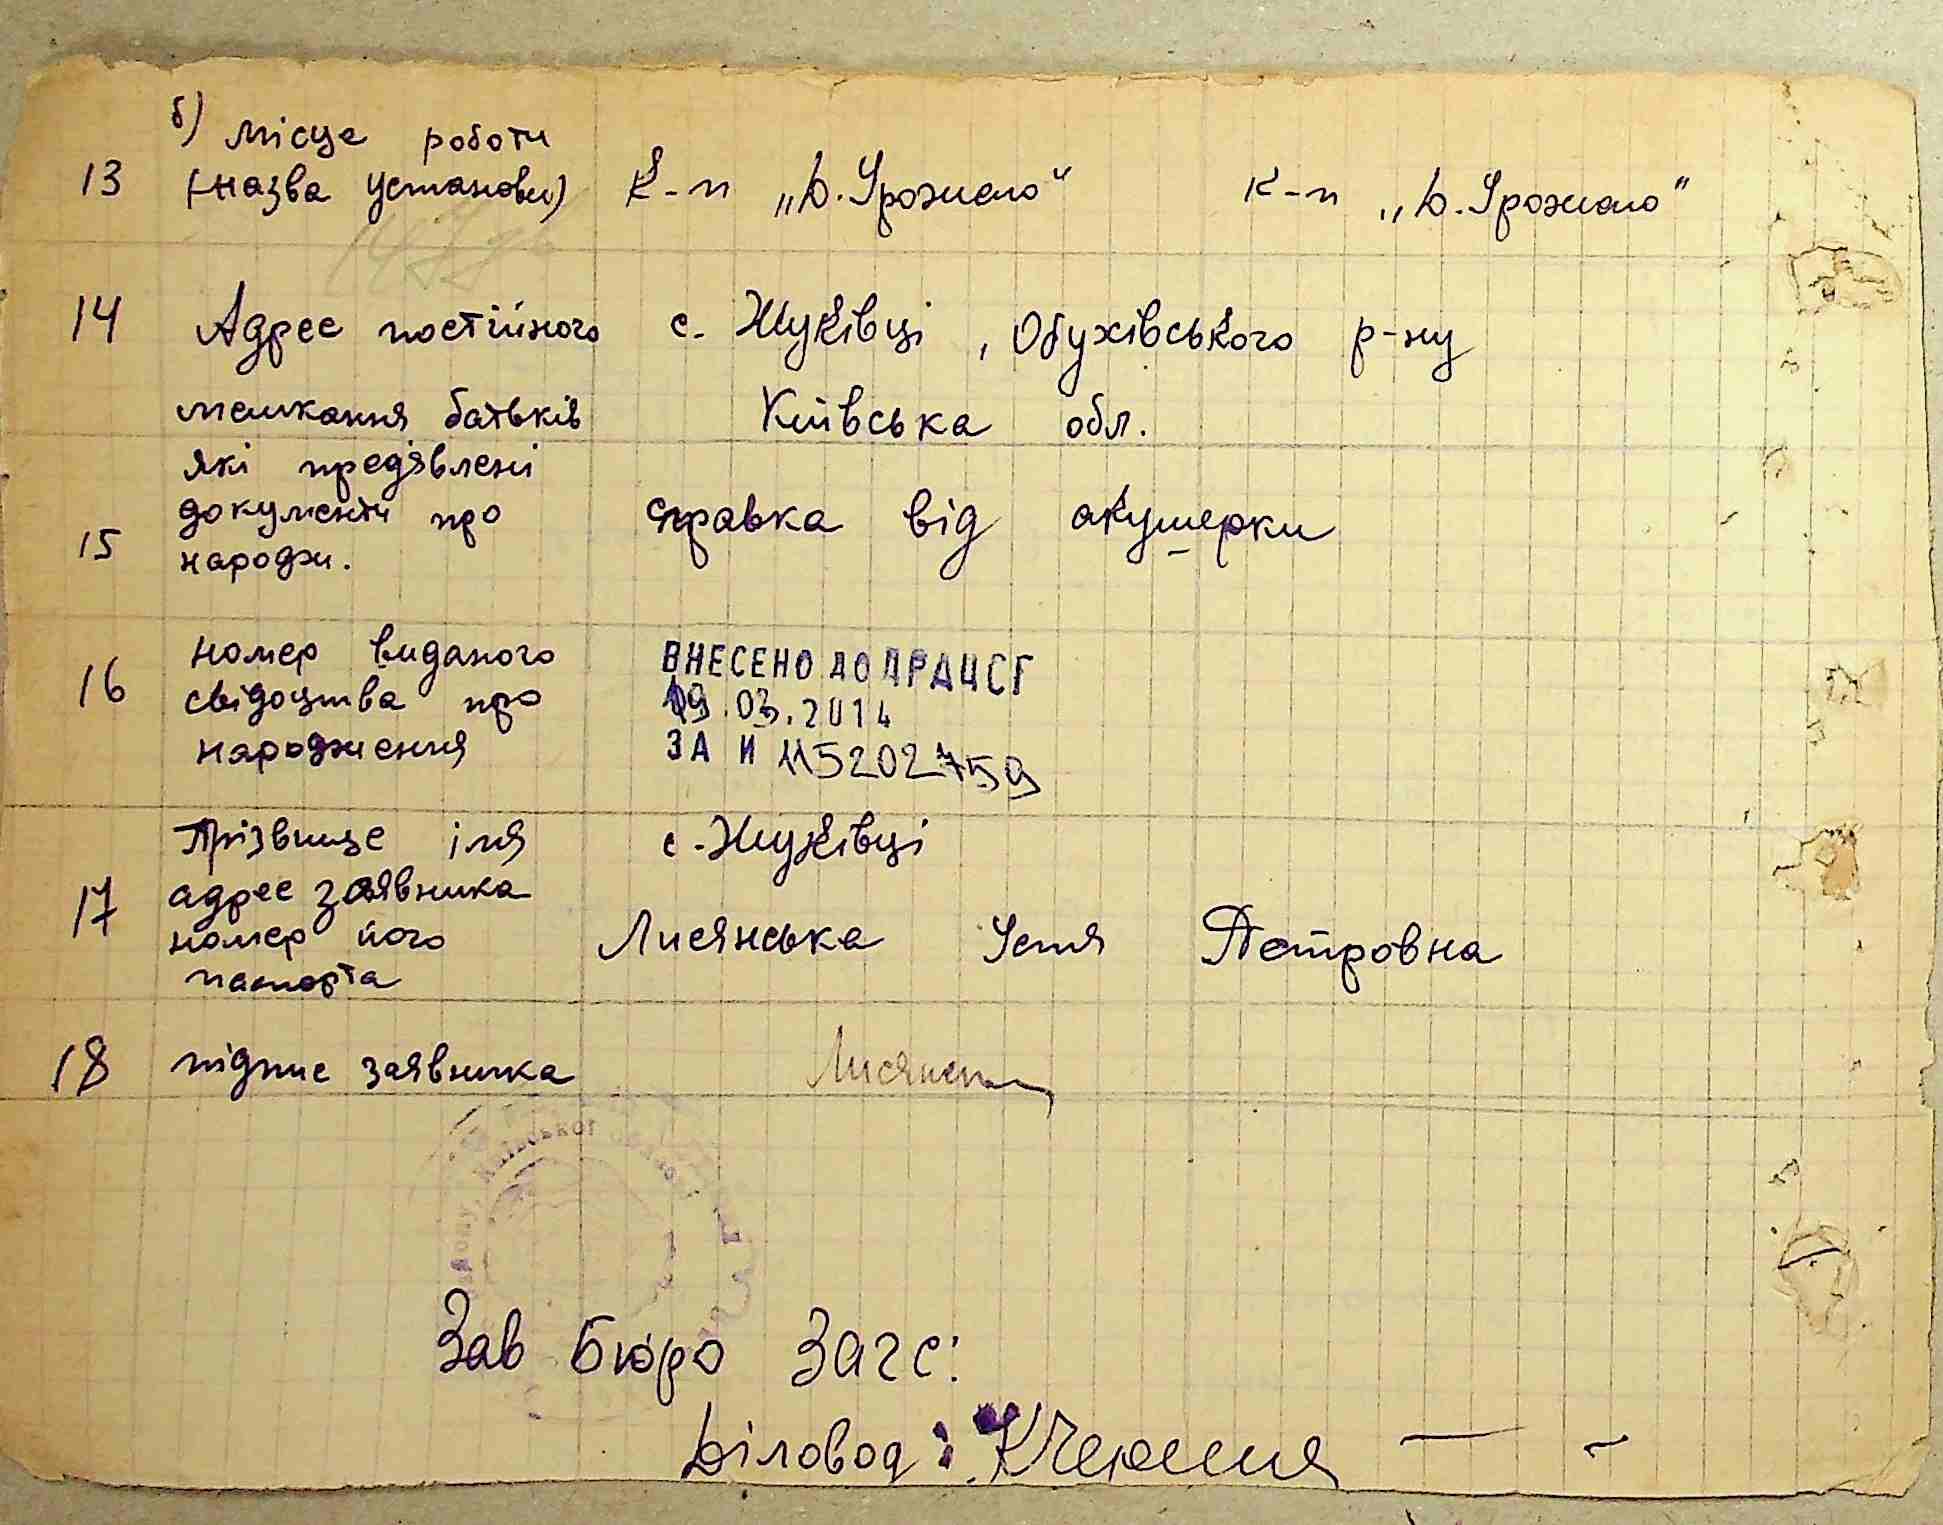 б) місце роботи
13 (назва установи) К-п „Б. Урожаю“ К-п „Б. Урожаю“
14 Адрес постійного с. Жуківці, Обухівського р-ну
мешкання батьків Київська обл.
які предявлені
документи про справка від акушерки
15 народж.
номер виданого ВНЕСЕНО ДО ДРАЦСГ
16 свідоцтва про 19.03.2014
народження ЗА N 115202759
Прізвище імя с. Жуківці
адрес заявника
17 номер його Лисянська Устя Петровна
паспорта
18 підпис заявника Лисянсь
Київської
Зав Бюро Загс:
Діловод: